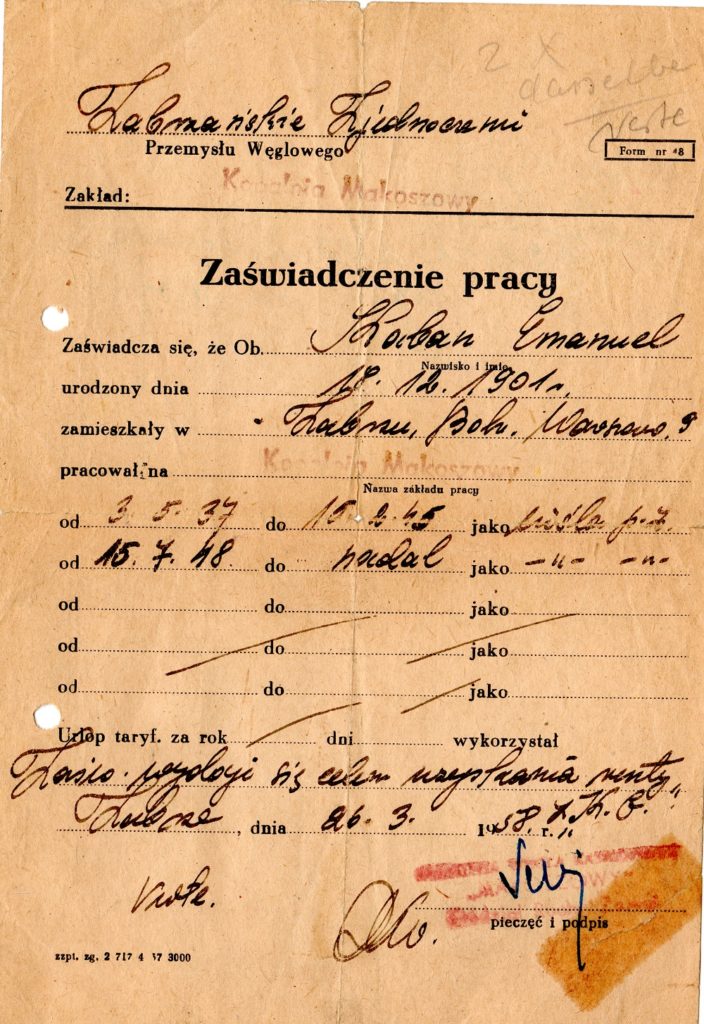 2 X
dasselbe
verte
Zabrzańskie Zjednoczenie
Przemysłu Węglowego
Form nr 48
Zakład: Kopalnia Makoszowy
Zaświadczenie pracy
Zaświadcza się, że Ob. Skaban Emanuel
Nazwisko i imię
urodzony dnia 18. 12. 1901 r.
zamieszkały w Zabrzu, Boh. Warszawy 9
pracował na Kopalnia Makoszowy
Nazwa zakładu pracy
od 3. 5. 37 do 15. 2. 45 jako cieśla
od 15. 7. 48 do nadal jako -"- -"-
od do jako
od do jako
od do jako
Urlop taryf. za rok dni wykorzystał
Zaśw. wydaje się celem uzyskania renty
Zabrze, dnia 26. 3. 1958 r. „K. O."
Verte.
pieczęć i podpis
zzpt. zg. 2 717 4 57 3000